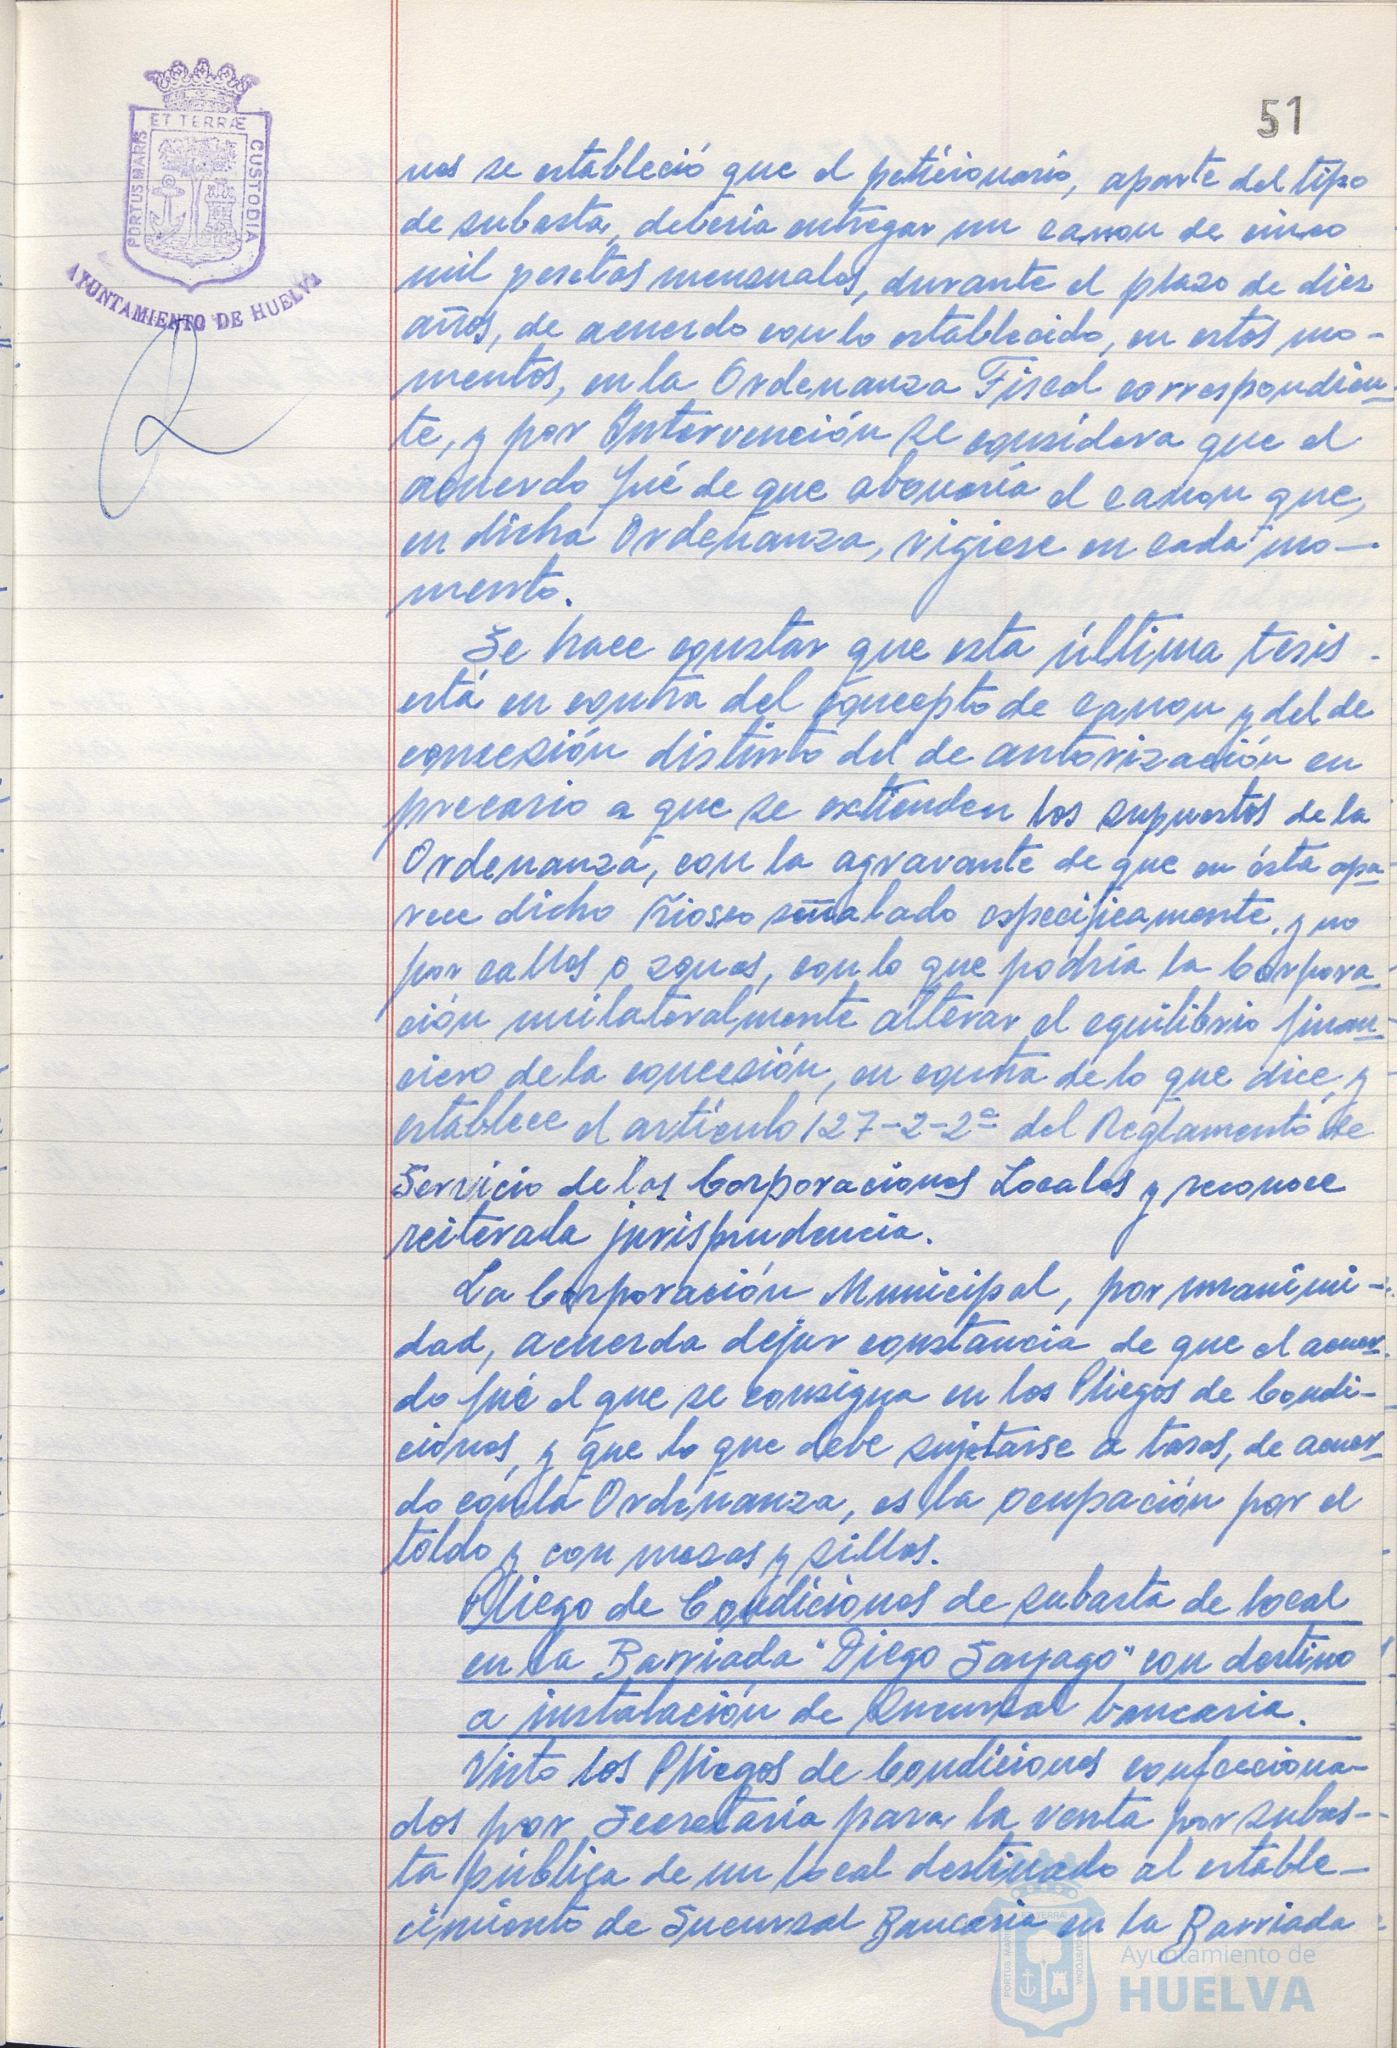 51
ET TERRÆ
PORTUS MARIS
CUSTODIA
AYUNTAMIENTO DE HUELVA
nes se estableció que el peticionario, aparte del tipo
de subasta, debería entregar un canon de cinco
mil pesetas mensuales, durante el plazo de diez
años, de acuerdo con lo establecido, en estos mo-
mentos, en la Ordenanza Fiscal correspondien-
te, y por Intervención se considera que el
acuerdo fué de que abonaría el canon que,
en dicha Ordenanza, rigiese en cada mo-
mento.
Se hace constar que esta última tesis
está en contra del concepto de canon y del de
concesión distinto del de autorización en
precario a que se extienden los supuestos de la
Ordenanza, con la agravante de que en ésta apa-
rece dicho Kiosco señalado específicamente, y no
por calles o zonas, con lo que podría la Corpora-
ción unilateralmente alterar el equilibrio finan-
ciero de la concesión, en contra de lo que dice y
establece el artículo 127-2-2º del Reglamento de
Servicio de las Corporaciones Locales y reconoce
reiterada jurisprudencia.
La Corporación Municipal, por unanimi-
dad, acuerda dejar constancia de que el acuer-
do fué el que se consigna en los Pliegos de Condi-
ciones, y que lo que debe sujetarse a tasas, de acuer-
do con la Ordenanza, es la ocupación por el
toldo y con mesas y sillas.
Pliego de Condiciones de subasta de local
en la Barriada "Diego Sayago" con destino
a instalación de Sucursal bancaria.
Visto los Pliegos de Condiciones confecciona-
dos por Secretaría para la venta por subas-
ta pública de un local destinado al estable-
cimiento de Sucursal Bancaria en la Barriada
Ayuntamiento de
HUELVA